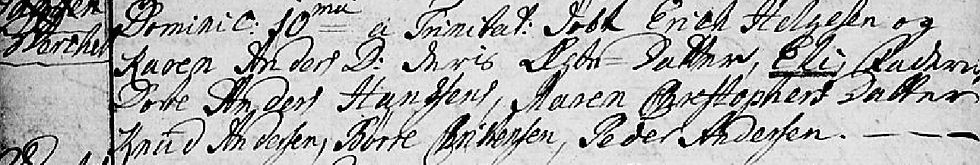 Dominic: 10mâ a Trinitat: Døbt Erich Helgesen og
Karen Anders D: deris Datter, Eli, Faderne
Anders Hansens, Maren Christophers Datter
Knud Andersen, Børre Andersen, Peder Andersen.